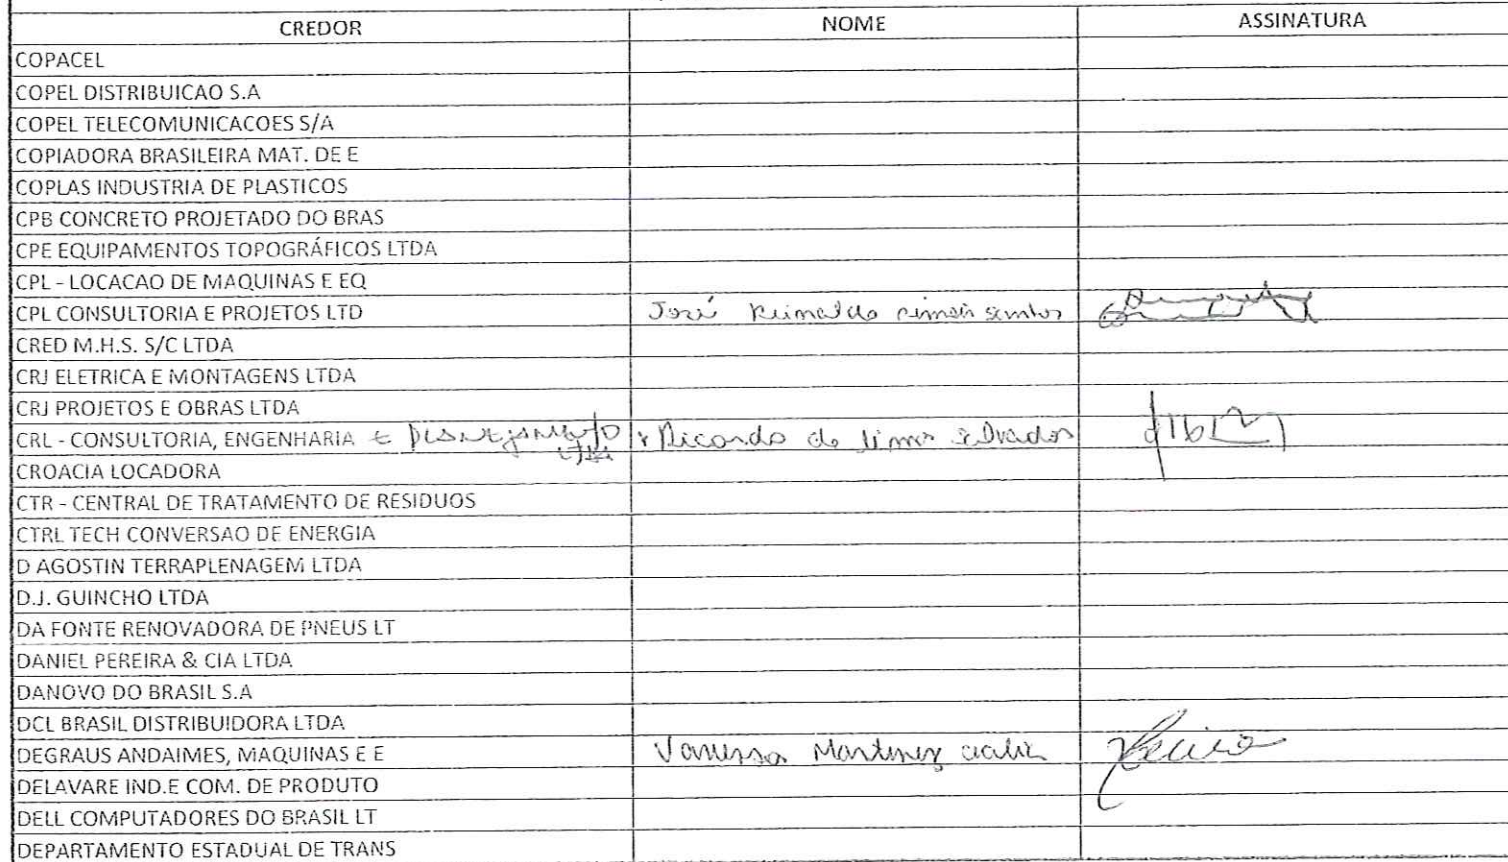 CREDOR NOME ASSINATURA
COPACEL
COPEL DISTRIBUICAO S.A
COPEL TELECOMUNICACOES S/A
COPIADORA BRASILEIRA MAT. DE E
COPLAS INDUSTRIA DE PLASTICOS
CPB CONCRETO PROJETADO DO BRAS
CPE EQUIPAMENTOS TOPOGRÁFICOS LTDA
CPL - LOCACAO DE MAQUINAS E EQ
CPL CONSULTORIA E PROJETOS LTD José Reinaldo
CRED M.H.S. S/C LTDA
CRJ ELETRICA E MONTAGENS LTDA
CRJ PROJETOS E OBRAS LTDA
CRL - CONSULTORIA, ENGENHARIA E PLANEJAMENTO LTDA Ricardo de Lima
CROACIA LOCADORA
CTR - CENTRAL DE TRATAMENTO DE RESIDUOS
CTRL TECH CONVERSAO DE ENERGIA
D AGOSTIN TERRAPLENAGEM LTDA
D.J. GUINCHO LTDA
DA FONTE RENOVADORA DE PNEUS LT
DANIEL PEREIRA & CIA LTDA
DANOVO DO BRASIL S.A
DCL BRASIL DISTRIBUIDORA LTDA
DEGRAUS ANDAIMES, MAQUINAS E E Vanessa Martinez
DELAVARE IND.E COM. DE PRODUTO
DELL COMPUTADORES DO BRASIL LT
DEPARTAMENTO ESTADUAL DE TRANS